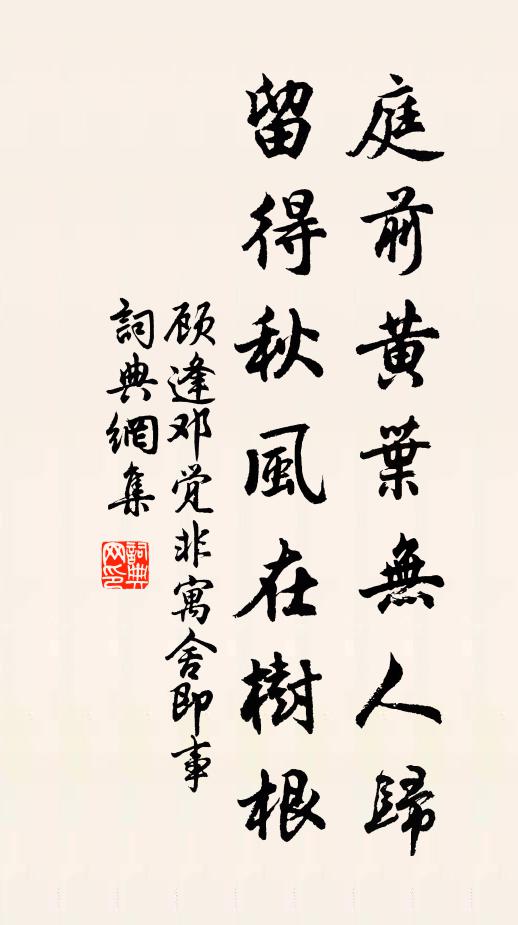 庭前黃葉無人歸
留得秋風在樹根
顾逢邓觉非寓舍即事
詞典網集
詞典网印